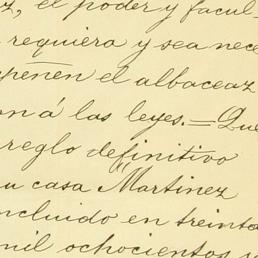 z, el poder y facul-
requiera y sea nece
peñen el albaceaz
on á las leyes.=Que
reglo definitivo
u casa Martinez
ncluido en treinta
mil ochocientos y